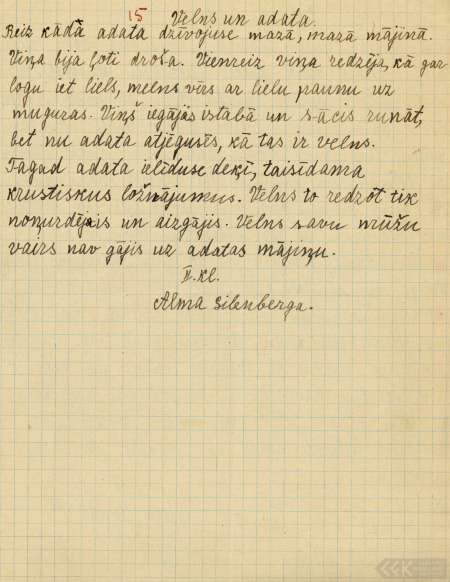 15
Velns un adata.
Reiz kādā adata dzīvojuse mazā, mazā mājinā.
Viņa bija ļoti droša. Vienreiz viņa redzēja, kā gar
logu iet liels, melns vīrs ar lielu paunu uz
muguras. Viņš iegājis istabā un sācis runāt,
bet nu adata atjēgusēs, kā tas ir velns.
Tagad adata ielīduse deķī, taisīdama
krustiskus ložņājumus. Velns to redzot tik
noņurdējis un aizgājis. Velns savu mūžu
vairs nav gājis uz adatas mājiņu.
V. kl.
Alma Silenberga.